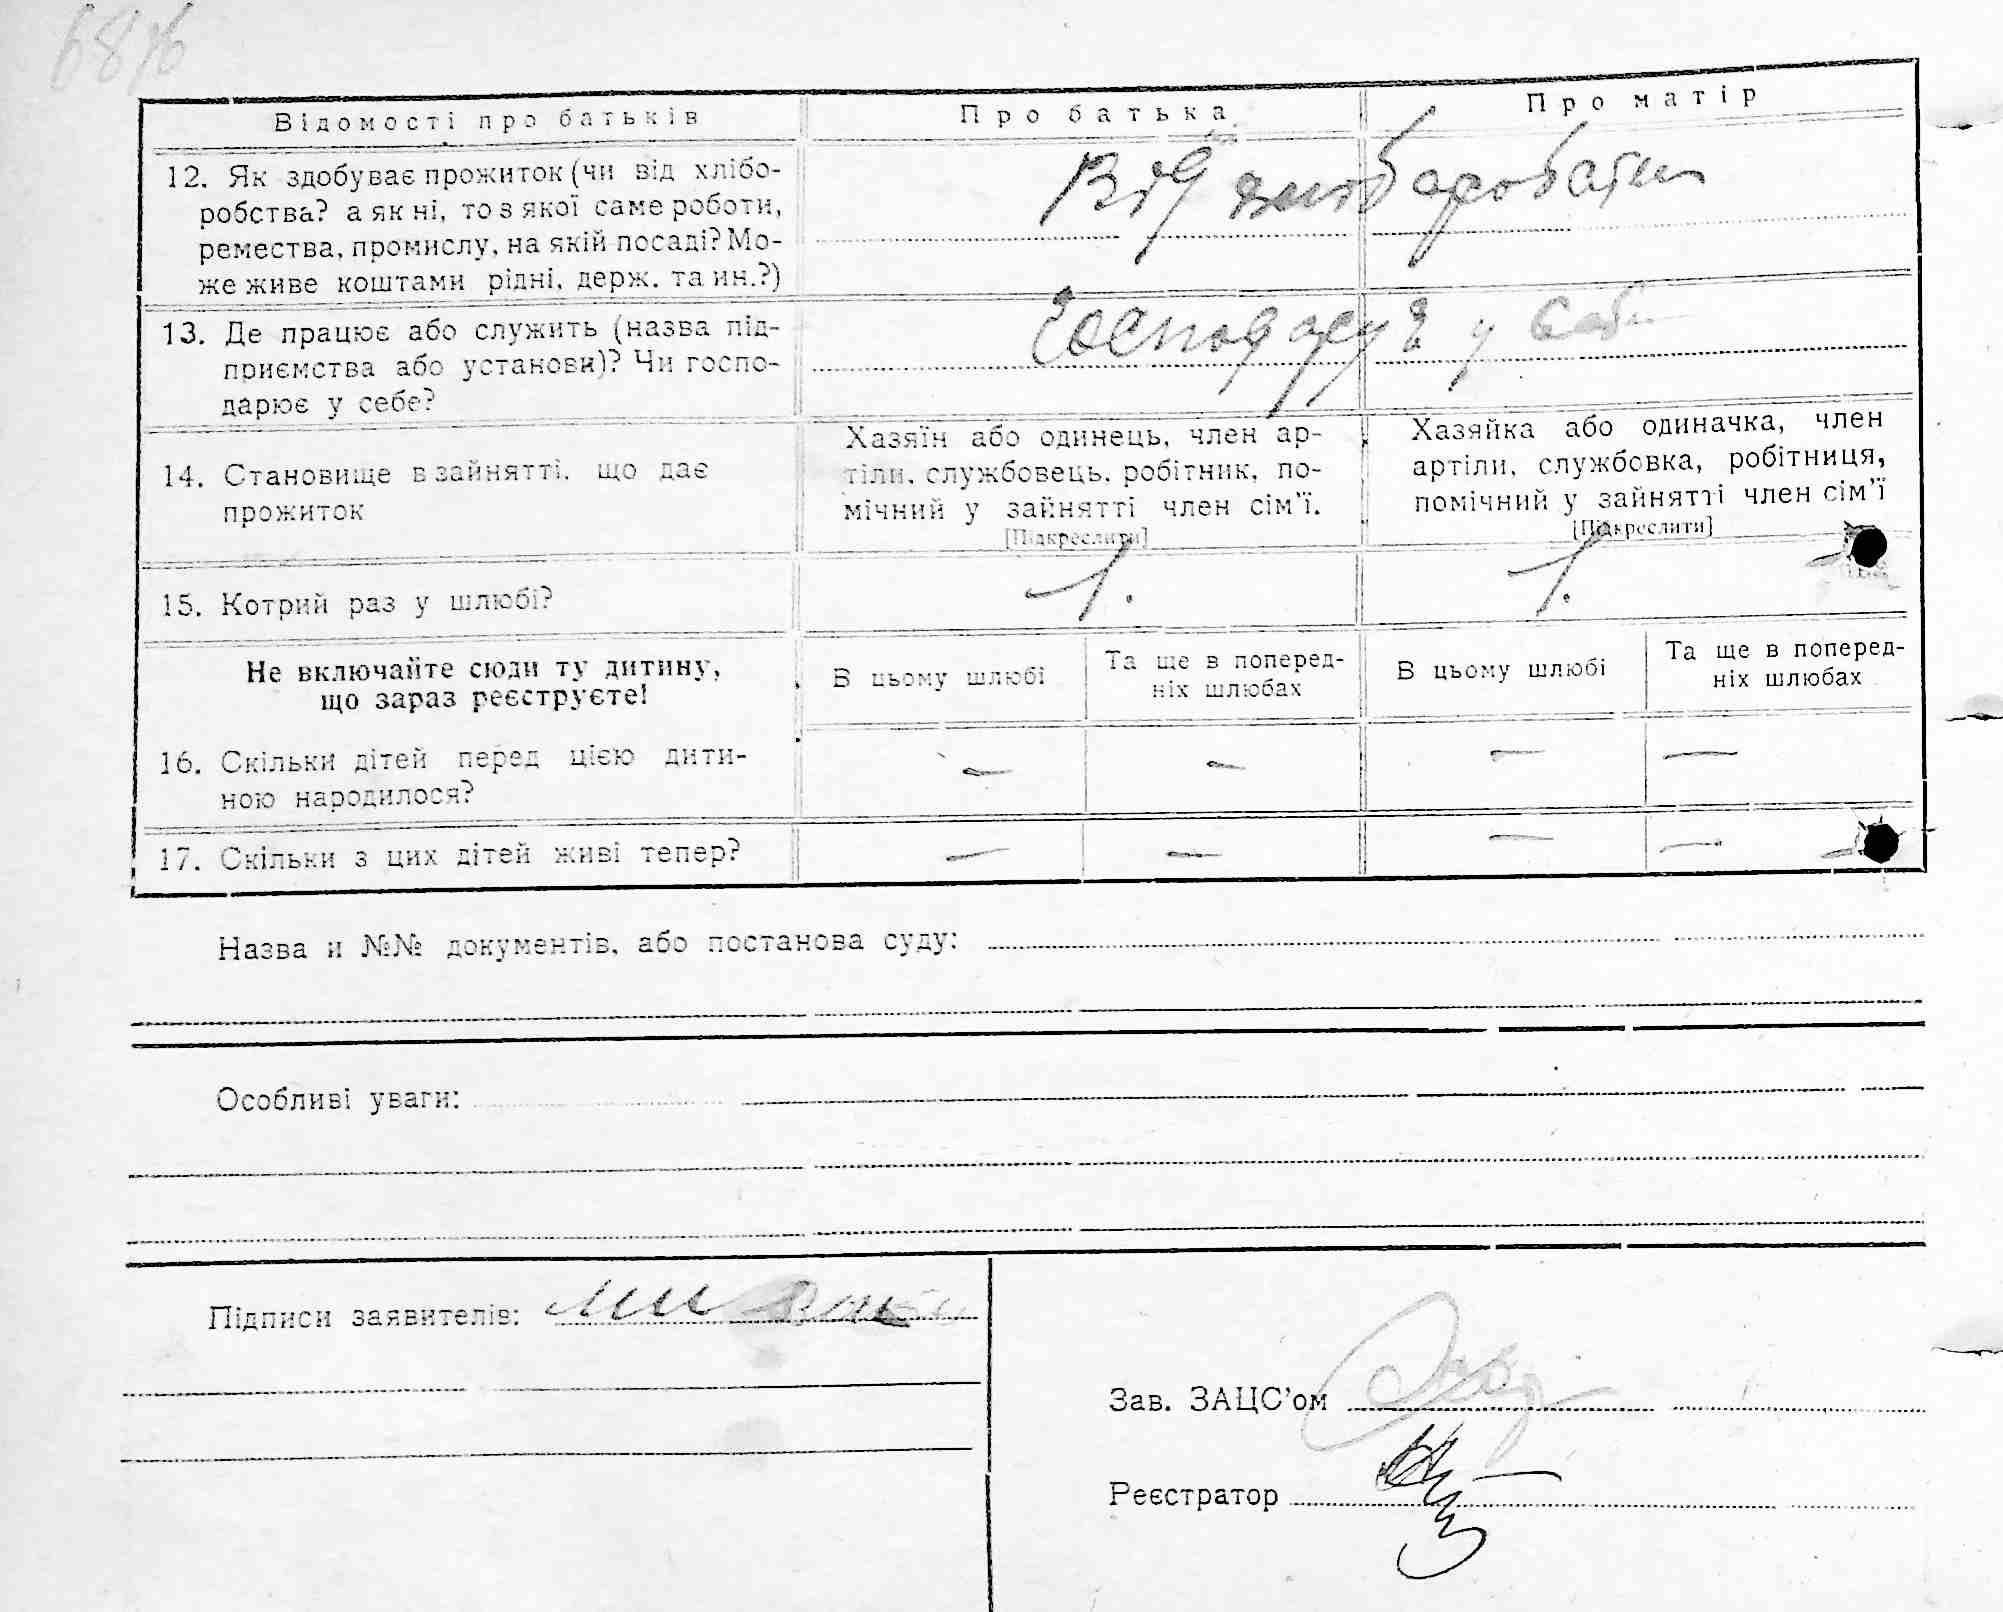 Відомості про батьків Про батька Про матір
12. Як здобуває прожиток (чи від хлібо-
робства? а як ні, то з якої саме роботи,
ремества, промислу, на якій посаді? Мо-
же живе коштами рідні, держ. та ин.?)
Від
13. Де працює або служить (назва під-
приємства або установи)? Чи госпо-
дарює у себе?
Господарує у себе
14. Становище в зайнятті, що дає
прожиток
Хазяїн або одинець, член ар-
тілі, службовець, робітник, по-
мічний у зайнятті член сім'ї.
[Підкреслити]
Хазяйка або одиначка, член
артіли, службовка, робітниця,
помічний у зайнятті член сім'ї
[Підкреслити]
15. Котрий раз у шлюбі? 1. 1.
Не включайте сюди ту дитину,
що зараз реєструєте!
В цьому шлюбі
Та ще в поперед-
ніх шлюбах
В цьому шлюбі
Та ще в поперед-
ніх шлюбах
16. Скільки дітей перед цією дити-
ною народилося?
— — — —
17. Скільки з цих дітей живі тепер? — — — —
Назва и №№ документів, або постанова суду:
Особливі уваги:
Підписи заявителів:
Зав. ЗАЦС'ом
Реєстратор